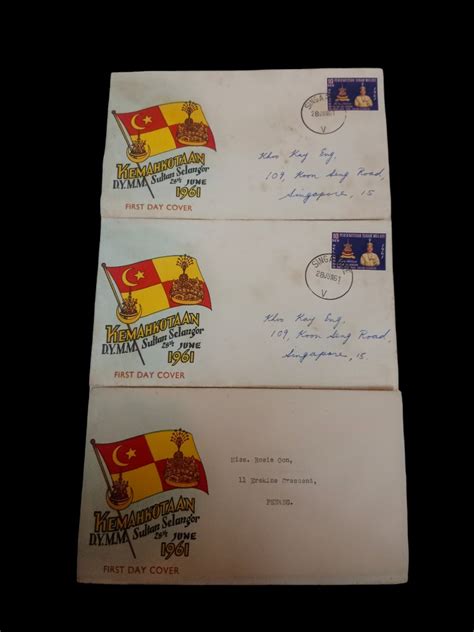 PERSEKUTUAN TANAH MELAYU
SINGA
28JUN61
V
KEMAHKOTAAN
D.Y.M.M. Sultan Selangor
28th JUNE
1961
FIRST DAY COVER
Khoo Kay Eng,
109, Koon Seng Road,
Singapore, 15
PERSEKUTUAN TANAH MELAYU
SINGA
28JUN61
V
KEMAHKOTAAN
D.Y.M.M. Sultan Selangor
28th JUNE
1961
FIRST DAY COVER
Khoo Kay Eng,
109, Koon Seng Road,
Singapore, 15
KEMAHKOTAAN
D.Y.M.M. Sultan Selangor
28th JUNE
1961
FIRST DAY COVER
Miss. Rosie Gon,
11 Erskine Crescent,
PENANG.